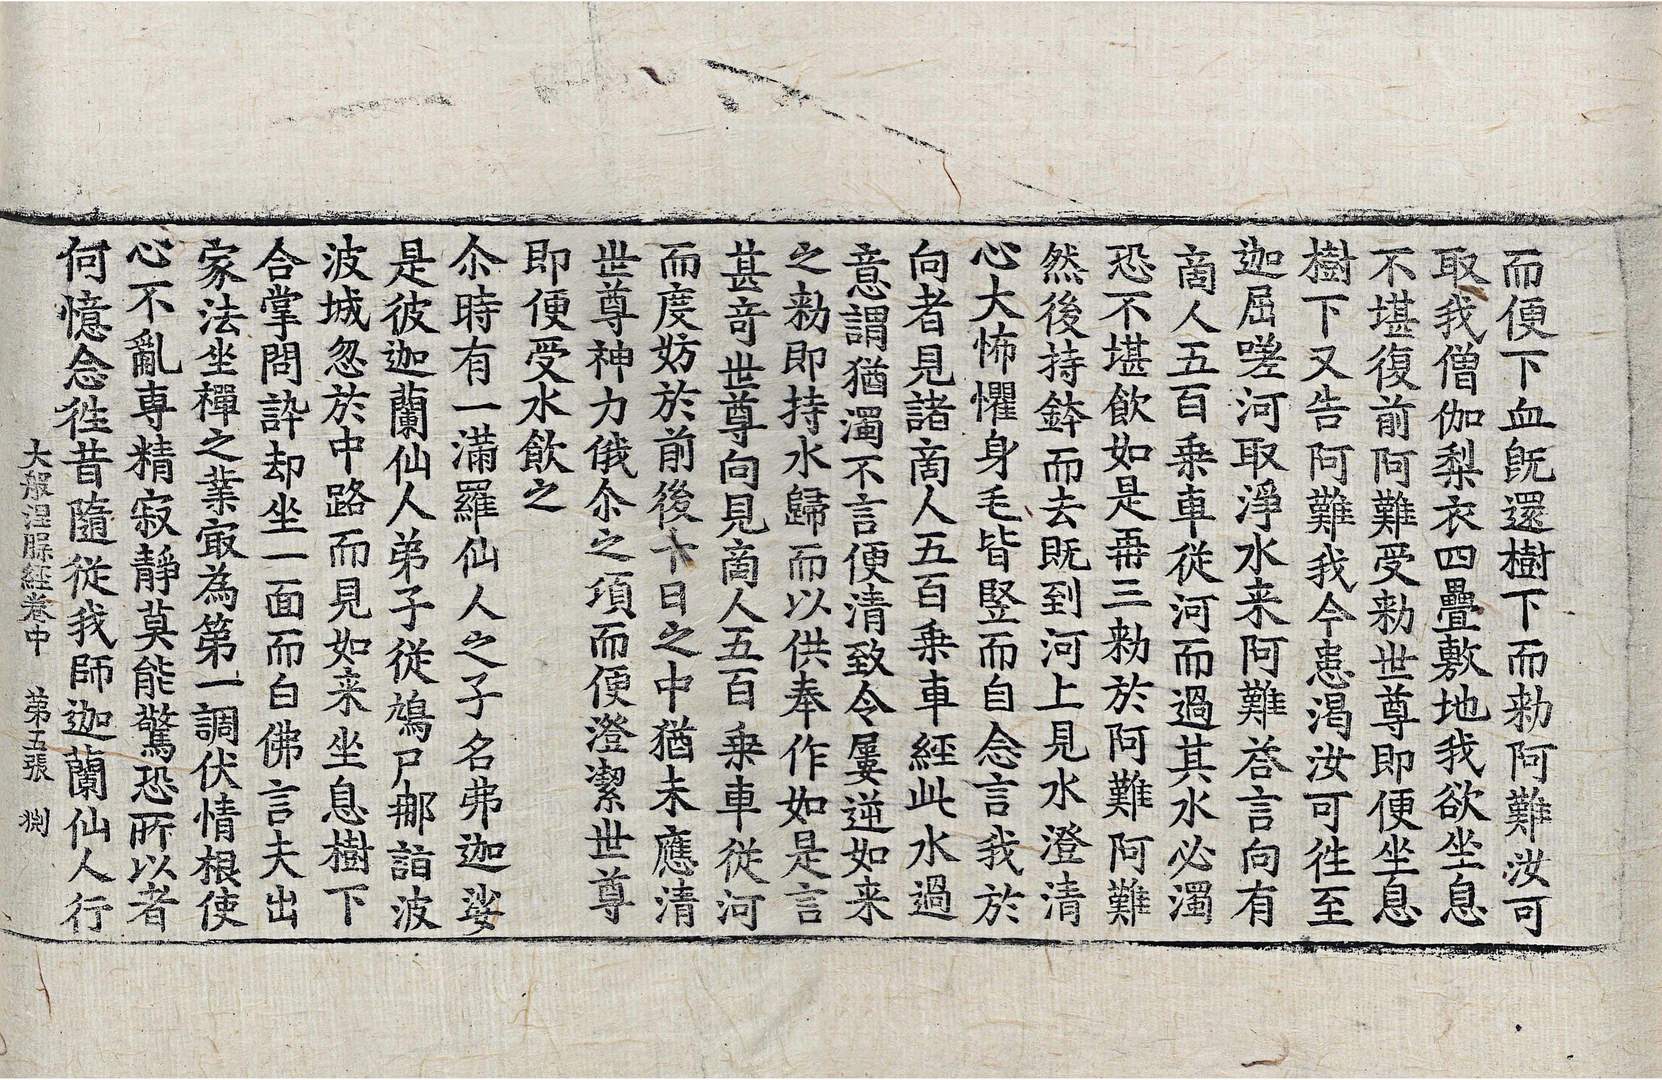 而便下血旣還樹下而勑阿難汝可
取我僧伽梨衣四疊敷地我欲坐息
不堪復前阿難受勑世尊即便坐息
樹下又告阿難我今患渴汝可徃至
迦屈嗟河取淨水来阿難荅言向有
啇人五百乗車從河而過其水必濁
恐不堪飮如是再三勑於阿難阿難
然後持鉢而去旣到河上見水澄清
心大怖懼身毛皆竪而自念言我於
向者見諸啇人五百乗車經此水過
意謂猶濁不言便清致令屢逆如来
之勑即持水歸而以供奉作如是言
甚竒世尊向見啇人五百乗車從河
而度妨於前後十日之中猶未應清
世尊神力俄尒之項而便澄潔世尊
即便受水飮之
尒時有一滿羅仙人之子名弗迦娑
是彼迦蘭仙人弟子從鳩尸𨙻詣波
波城忽於中路而見如来坐息樹下
合掌問訊却坐一面而白佛言夫出
家法坐禪之業㝡為第一調伏情根使
心不亂専精寂静莫能驚恐所以者
何憶念徃昔隨從我師迦蘭仙人行
大般涅槃経卷中　第五張　渕